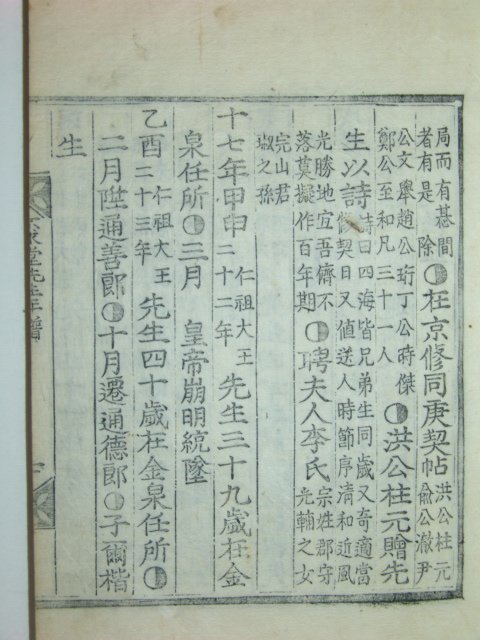 局而有碁間者有是 除●在京修同庚契帖洪公柱元兪公㵢尹
公文擧趙公珩丁公時傑鄭公至和凡三十一人●洪公柱元贈先
生以詩詩曰四海皆兄弟生同歲又奇適當修契日又値送人時節序淸和近風
光勝地宜吾儕不落莫擬作百年期●聘夫人李氏宗姓郡守光輔之女
完山君琡之孫
十七年甲申仁祖大王二十二年先生三十九歲在金
泉任所●三月 皇帝崩明統墜
乙酉仁祖大王二十三年先生四十歲在金泉任所●
二月陞通善郎●十月遷通德郎●子爾楷
生
堂先生年譜